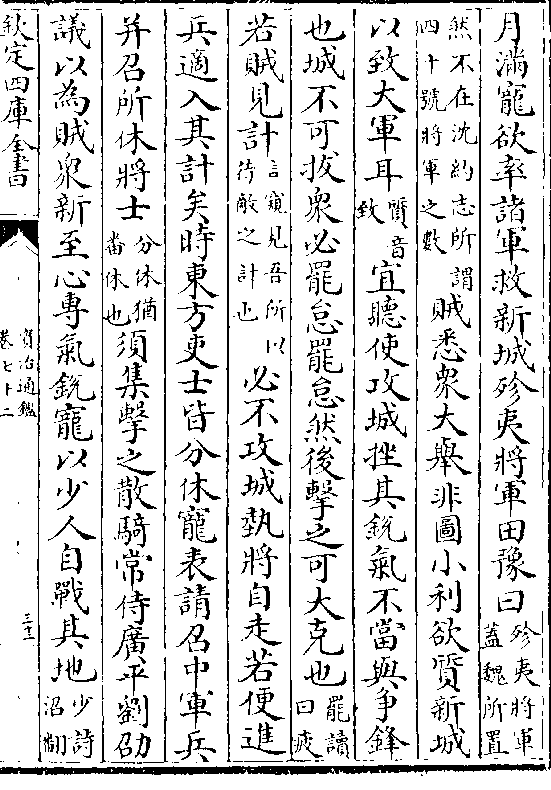 月滿寵欲率諸軍救新城殄夷將軍田豫曰殄夷將軍蓋魏所置
然不在沈約志所謂四十號將軍之數賊悉衆大舉非圖小利欲質新城
以致大軍耳質音致宜聽使攻城挫其銳氣不當與争鋒
也城不可拔衆必罷怠罷怠然後擊之可大克也罷讀曰疲
若賊見計言窺見吾所以待敵之計也必不攻城埶將自走若便進
兵適入其計矣時東方吏士皆分休寵表請召中軍兵
并召所休將士分休猶畨休也須集擊之散騎常侍廣平劉卲
議以為賊衆新至心専氣銳寵以少人自戰其地少詩沼翻
欽定四庫全書
資治通鑑
卷七十二
三十三